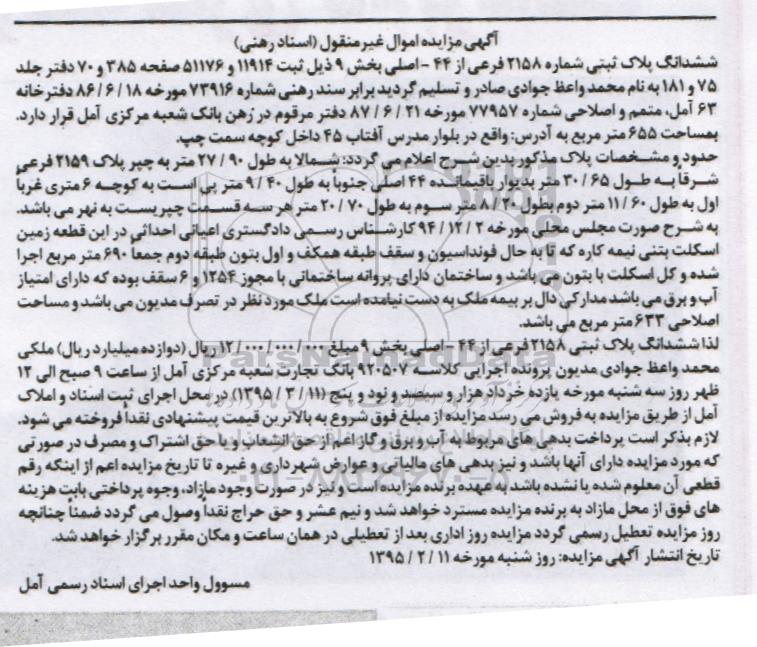 آگهی مزایده اموال غیر منقول (اسناد رهنی)
ششدانگ پلاک ثبتی شماره ۲۱۵۸ فرعی از ۴۴ - اصلی بخش ۹ ذیل ثبت ۱۱۹۱۴ و ۵۱۱۷۶ صفحه ۳۸۵ و ۷۰ دفتر جلد
۷۵ و ۱۸۱ به نام محمد واعظ جوادی صادر و تسلیم گردید برابر سند رهنی شماره ۷۳۹۱۶ مورخه ۱۸ / ۶ / ۸۶ دفترخانه
۶۳ آمل، متمم و اصلاحی شماره ۷۷۹۵۷ مورخه ۲۱ / ۶ / ۸۷ دفتر مرقوم در رهن بانک شعبه مرکزی آمل قرار دارد.
بمساحت ۶۵۵ متر مربع به آدرس: واقع در بلوار مدرس آفتاب ۴۵ داخل کوچه سمت چپ.
حدود و مشخصات پلاک مذکور بدین شرح اعلام می گردد: شمالا به طول ۹۰ / ۲۷ متر به چپر پلاک ۲۱۵۹ فرعی
شرقاً به طول ۶۵ / ۳۰ متر بدیوار باقیمانده ۴۴ اصلی جنوباً به طول ۴۰ / ۹ متر پی است به کوچه ۶ متری غرباً
اول به طول ۶۰ / ۱۱ متر دوم بطول ۲۰ / ۸ متر سوم به طول ۷۰ / ۲۰ متر هر سه قسمت چپریست به نهر می باشد.
به شرح صورت مجلس محلی مورخه ۲ / ۱۲ / ۹۴ کارشناس رسمی دادگستری اعیانی احداثی در این قطعه زمین
اسکلت بتنی نیمه کاره که تا به حال فونداسیون و سقف طبقه همکف و اول بتون طبقه دوم جمعاً ۶۹۰ متر مربع اجرا
شده و کل اسکلت با بتون می باشد و ساختمان دارای پروانه ساختمانی با مجوز ۱۲۵۴ و ۶ سقف بوده که دارای امتیاز
آب و برق می باشد مدارکی دال بر بیمه ملک به دست نیامده است ملک مورد نظر در تصرف مدیون می باشد و مساحت
اصلاحی ۶۳۳ متر مربع می باشد.
لذا ششدانگ پلاک ثبتی ۲۱۵۸ فرعی از ۴۴ - اصلی بخش ۹ مبلغ ۰۰۰ / ۰۰۰ / ۰۰۰ / ۱۲ ریال (دوازده میلیارد ریال) ملکی
محمد واعظ جوادی مدیون پرونده اجرایی کلاسه ۹۲۰۵۰۷ بانک تجارت شعبه مرکزی آمل از ساعت ۹ صبح الی ۱۲
ظهر روز سه شنبه مورخه یازده خرداد هزار و سیصد و نود و پنج (۱۱ / ۳ / ۱۳۹۵) در محل اجرای ثبت اسناد و املاک
آمل از طریق مزایده به فروش می رسد مزایده از مبلغ فوق شروع به بالاترین قیمت پیشنهادی نقداً فروخته می شود.
لازم بذکر است پرداخت بدهی های مربوط به آب و برق و گاز اعم از حق انشعاب و یا حق اشتراک و مصرف در صورتی
که مورد مزایده دارای آنها باشد و نیز بدهی های مالیاتی و عوارض شهرداری و غیره تا تاریخ مزایده اعم از اینکه رقم
قطعی آن معلوم شده یا نشده باشد به عهده برنده مزایده است و نیز در صورت وجود مازاد، وجوه پرداختی بابت هزینه
های فوق از محل مازاد به برنده مزایده مسترد خواهد شد و نیم عشر و حق حراج نقداً وصول می گردد ضمناً چنانچه
روز مزایده تعطیل رسمی گردد مزایده روز اداری بعد از تعطیلی در همان ساعت و مکان مقرر برگزار خواهد شد.
تاریخ انتشار آگهی مزایده: روز شنبه مورخه ۱۱ / ۲ / ۱۳۹۵
مسوول واحد اجرای اسناد رسمی آمل
ParsNamadData